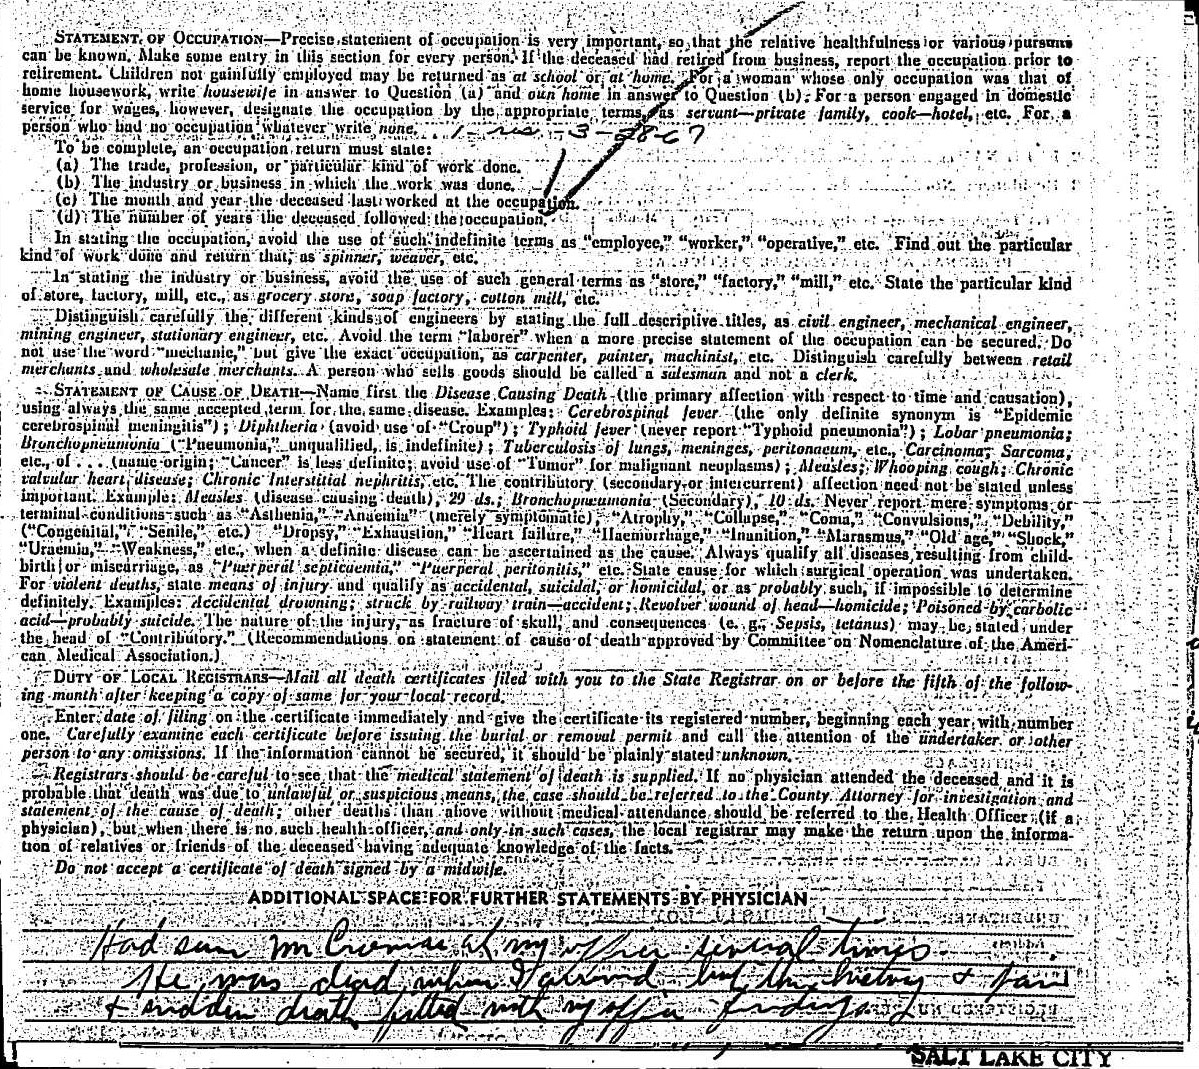 STATEMENT OF OCCUPATION—Precise statement of occupation is very important, so that the relative healthfulness or various pursuits
can be known. Make some entry in this section for every person. If the deceased had retired from business, report the occupation prior to
retirement. Children not gainfully employed may be returned as at school or at home. For a woman whose only occupation was that of
home housework, write housewife in answer to Question (a) and own home in answer to Question (b). For a person engaged in domestic
service for wages, however, designate the occupation by the appropriate terms, as servant—private family, cook—hotel, etc. For a
person who had no occupation whatever write none.
3-28-67
To be complete, an occupation return must state:
(a) The trade, profession, or particular kind of work done.
(b) The industry or business in which the work was done.
(c) The month and year the deceased last worked at the occupation.
(d) The number of years the deceased followed the occupation.
In stating the occupation, avoid the use of such indefinite terms as "employee," "worker," "operative," etc. Find out the particular
kind of work done and return that, as spinner, weaver, etc.
In stating the industry or business, avoid the use of such general terms as "store," "factory," "mill," etc. State the particular kind
of store, factory, mill, etc., as grocery store, soap factory, cotton mill, etc.
Distinguish carefully the different kinds of engineers by stating the full descriptive titles, as civil engineer, mechanical engineer,
mining engineer, stationary engineer, etc. Avoid the term "laborer" when a more precise statement of the occupation can be secured. Do
not use the word "mechanic," but give the exact occupation, as carpenter, painter, machinist, etc. Distinguish carefully between retail
merchants and wholesale merchants. A person who sells goods should be called a salesman and not a clerk.
STATEMENT OF CAUSE OF DEATH—Name first the Disease Causing Death (the primary affection with respect to time and causation),
using always the same accepted term for the same disease. Examples: Cerebrospinal fever (the only definite synonym is "Epidemic
cerebrospinal meningitis"); Diphtheria (avoid use of "Croup"); Typhoid fever (never report "Typhoid pneumonia"); Lobar pneumonia;
Bronchopneumonia ("Pneumonia," unqualified, is indefinite); Tuberculosis of lungs, meninges, peritonaeum, etc., Carcinoma, Sarcoma,
etc., of . . . (name origin; "Cancer" is less definite; avoid use of "Tumor" for malignant neoplasms); Measles; Whooping cough; Chronic
valvular heart disease; Chronic Interstitial nephritis, etc. The contributory (secondary or intercurrent) affection need not be stated unless
important. Example: Measles (disease causing death), 29 ds.; Bronchopneumonia (Secondary), 10 ds. Never report mere symptoms or
terminal conditions such as "Asthenia," "Anaemia" (merely symptomatic), "Atrophy," "Collapse," "Coma," "Convulsions," "Debility,"
("Congenital," "Senile," etc.) "Dropsy," "Exhaustion," "Heart failure," "Haemorrhage," "Inanition," "Marasmus," "Old age," "Shock,"
"Uraemia," "Weakness," etc., when a definite disease can be ascertained as the cause. Always qualify all diseases resulting from child-
birth or miscarriage, as "Puerperal septicaemia," "Puerperal peritonitis," etc. State cause for which surgical operation was undertaken.
For violent deaths, state means of injury and qualify as accidental, suicidal, or homicidal, or as probably such, if impossible to determine
definitely. Examples: Accidental drowning; struck by railway train—accident; Revolver wound of head—homicide; Poisoned by carbolic
acid—probably suicide. The nature of the injury, as fracture of skull, and consequences (e. g., Sepsis, tetanus) may be stated under
the head of "Contributory." (Recommendations on statement of cause of death approved by Committee on Nomenclature of the Ameri-
can Medical Association.)
DUTY OF LOCAL REGISTRARS—Mail all death certificates filed with you to the State Registrar on or before the fifth of the follow-
ing month after keeping a copy of same for your local record.
Enter date of filing on the certificate immediately and give the certificate its registered number, beginning each year with number
one. Carefully examine each certificate before issuing the burial or removal permit and call the attention of the undertaker or other
person to any omissions. If the information cannot be secured, it should be plainly stated unknown.
Registrars should be careful to see that the medical statement of death is supplied. If no physician attended the deceased and it is
probable that death was due to unlawful or suspicious means, the case should be referred to the County Attorney for investigation and
statement of the cause of death; other deaths than above without medical attendance should be referred to the Health Officer (if a
physician), but when there is no such health officer, and only in such cases, the local registrar may make the return upon the informa-
tion of relatives or friends of the deceased having adequate knowledge of the facts.
Do not accept a certificate of death signed by a midwife.
ADDITIONAL SPACE FOR FURTHER STATEMENTS BY PHYSICIAN
Had seen Mr at my office several times.
He was dead when I arrived but the history & pain
& sudden death fitted with my office findings
SALT LAKE CITY